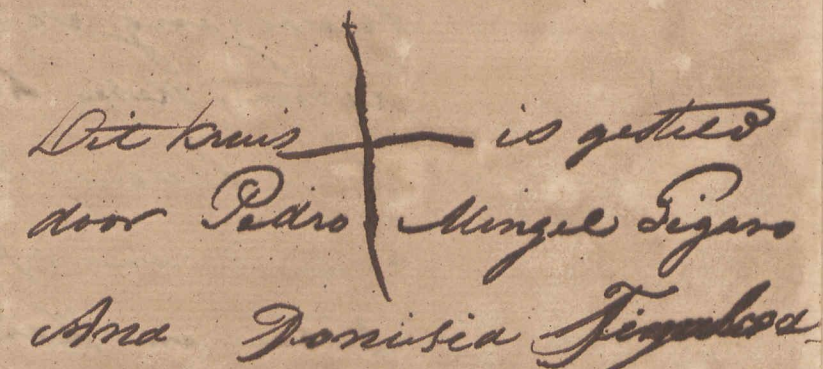 Dit kruis is gesteld
door Pedro Mingel Figaro
Ana Donisia